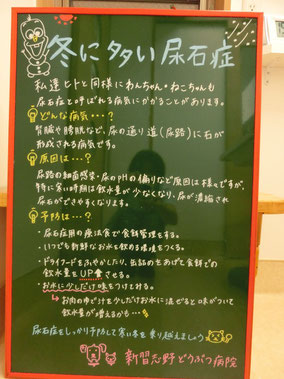 冬に多い尿石症
私達ヒトと同様にわんちゃん・ねこちゃんも
尿石症と呼ばれる病気にかかることがあります。
どんな病気…?
腎臓や膀胱など、尿の通り道(尿路)に石が
形成される病気です。
原因は…?
尿路の細菌感染・尿のpHの偏りなど原因は様々ですが、
特に寒い時期は飲水量が少なくなり、尿が濃縮され
尿石ができやすくなります。
予防は…?
・尿石症用の療法食で食餌管理をする。
・いつでも新鮮なお水を飲める環境をつくる。
・ドライフードをふやかしたり、缶詰めをあげて食餌での
飲水量をUP↑させる。
・お水に少しだけ味をつけてみる。
↳お肉のゆで汁を少しだけお水に混ぜると味がついて
飲水量が増えるかも…!
尿石症をしっかり予防して寒い冬を乗り越えましょう
新習志野どうぶつ病院